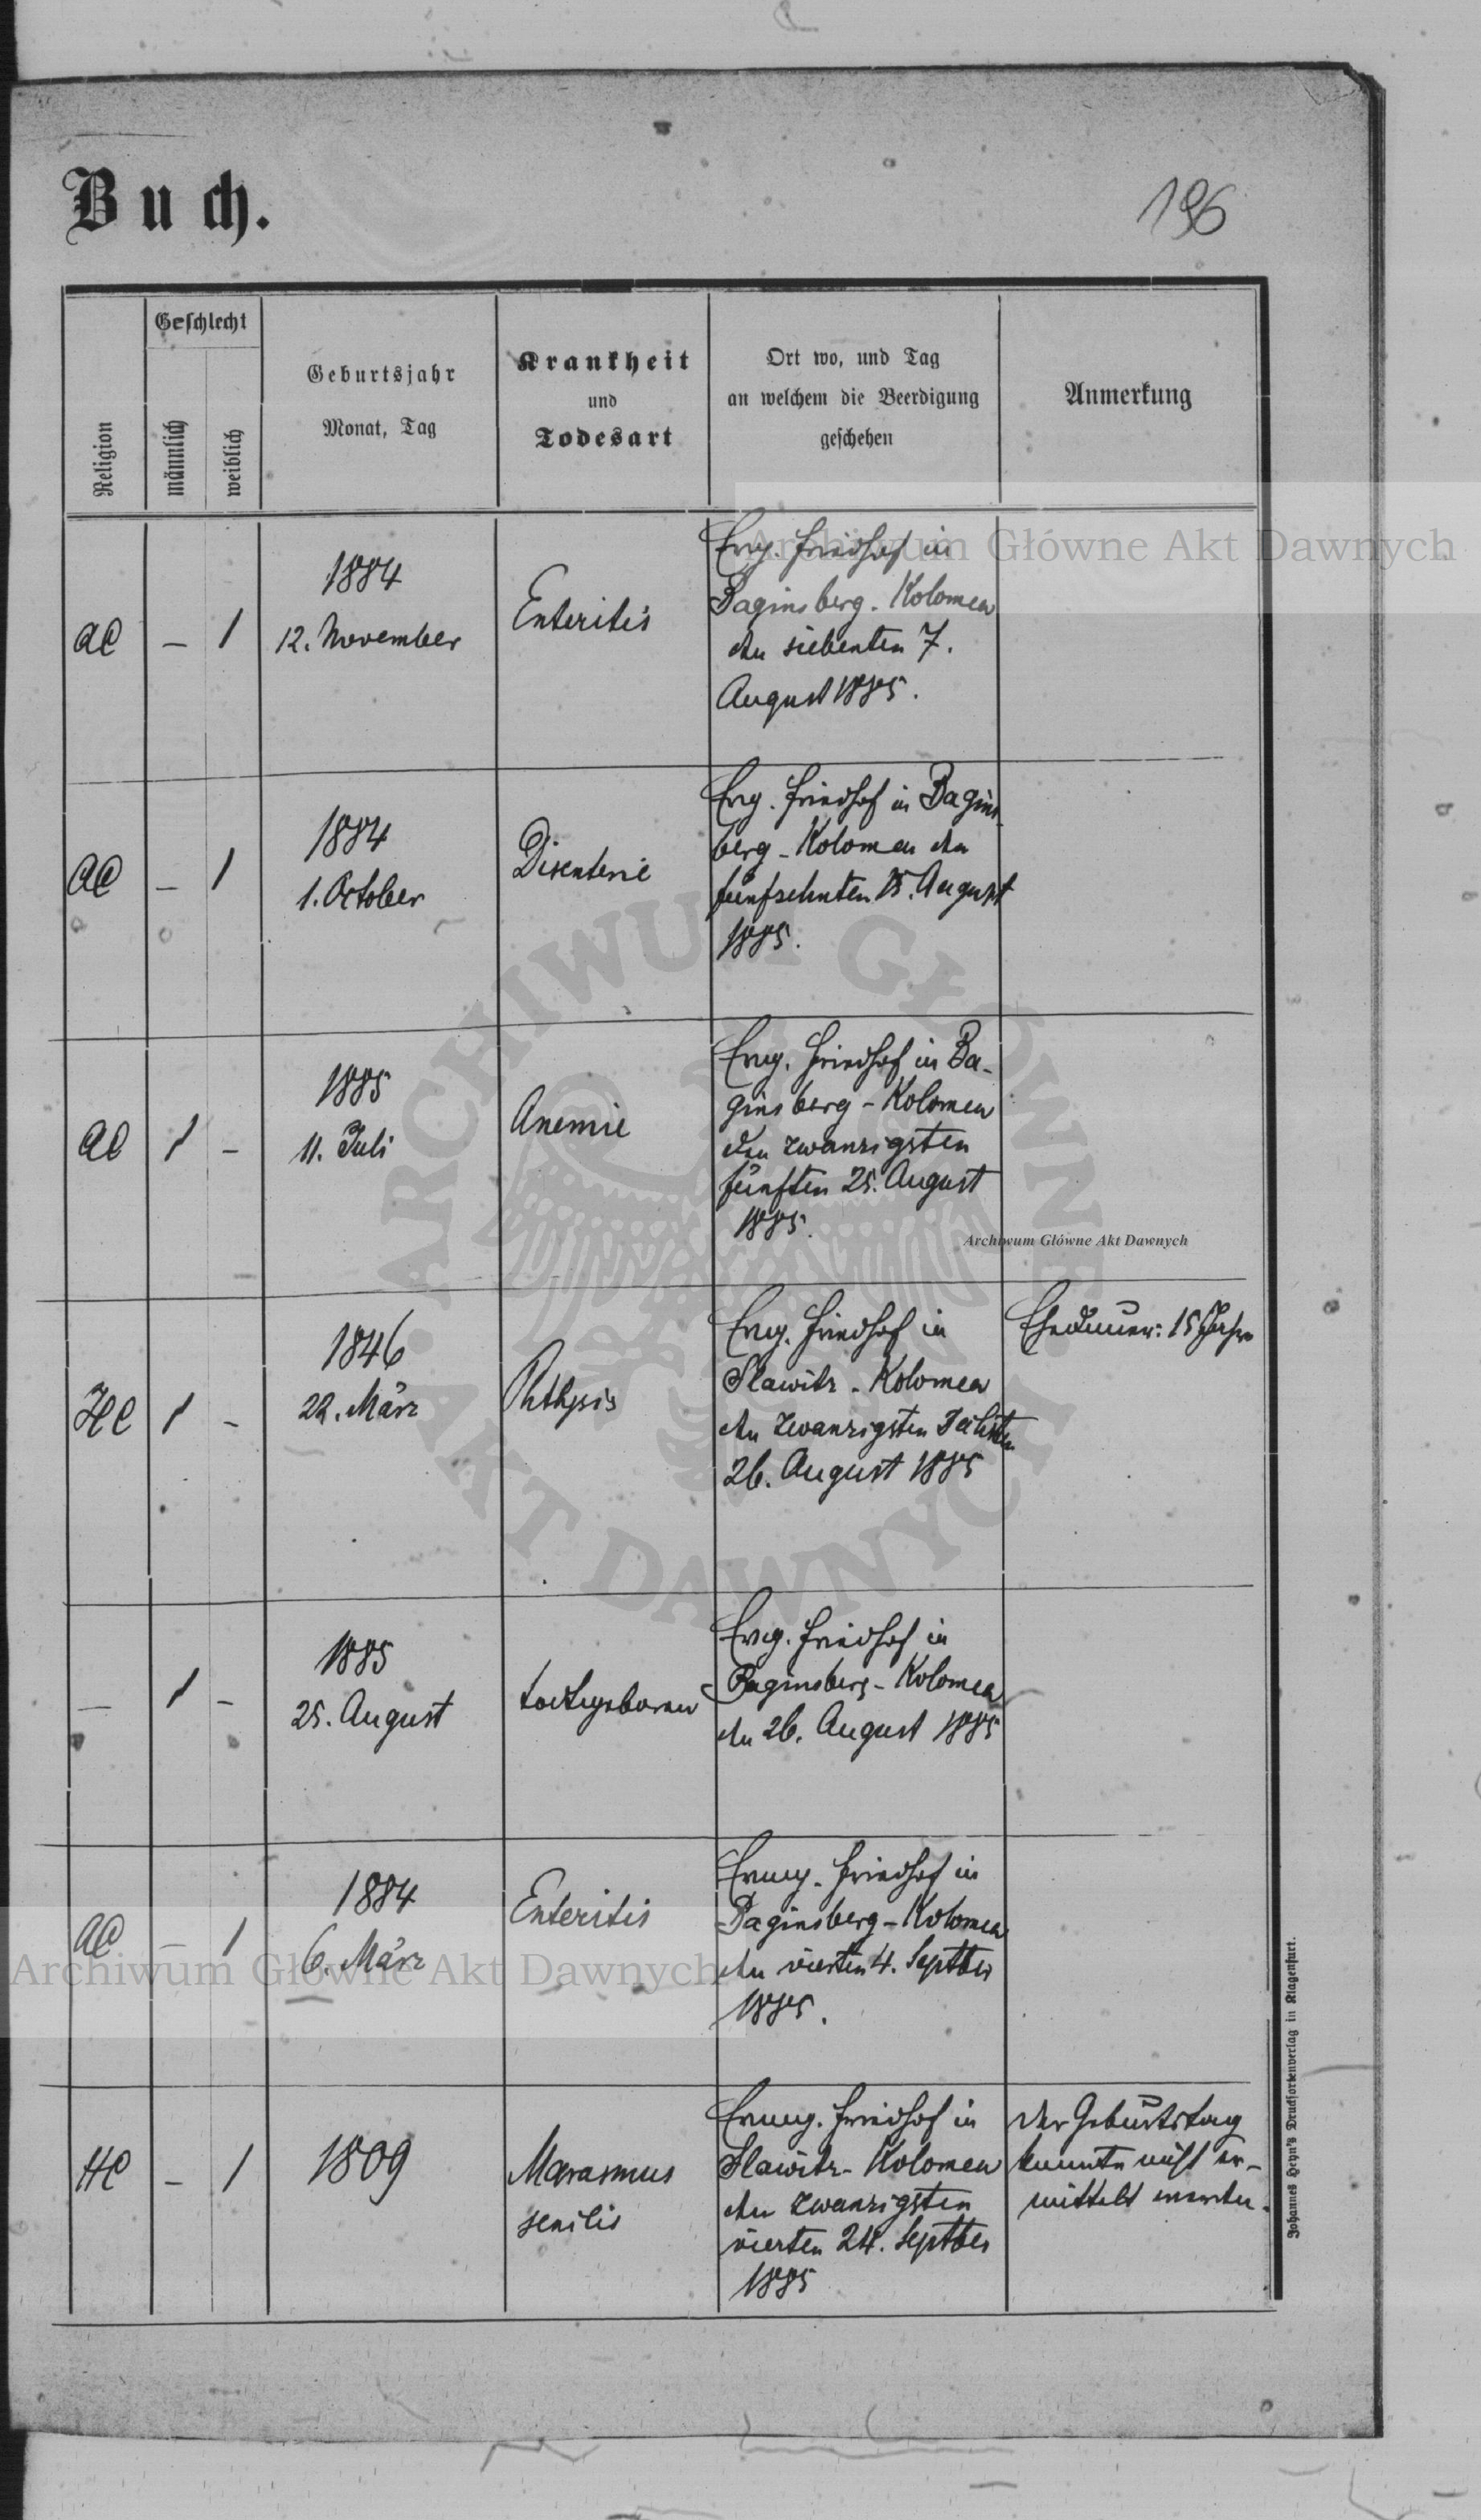 Buch.
196
Religion
Geschlecht
männlich
weiblich
Geburtsjahr
Monat, Tag
Krankheit
und
Todesart
Ort wo, und Tag
an welchem die Beerdigung
geschehen
Anmerkung
AC
–
1
1884
12. November
Enteritis
Evg. Friedhof in
Baginsberg - Kolomea
den siebenten 7.
August 1885.
AC
–
1
1884
1. October
Disenterie
Evg. Friedhof in Bagins-
berg - Kolomea den
fünfzehnten 15. August
1885.
AC
1
–
1885
11. Juli
Anemie
Evg. Friedhof in Ba-
ginsberg - Kolomea
den zwanzigsten
fünften 25. August
1885.
HC
1
–
1846
22. März
Phthysis
Evg. Friedhof in
Slawitz - Kolomea
den zwanzigsten
26. August 1885
Ehedauer: 15 Jahre
–
1
–
1885
25. August
todtgeboren
Evg. Friedhof in
Baginsberg - Kolomea
den 26. August 1885
AC
–
1
1884
6. März
Enteritis
Evang. Friedhof in
Baginsberg - Kolomea
den vierten 4. Septber
1885.
HC
–
1
1809
Marasmus
senilis
Evang. Friedhof in
Slawitz - Kolomea
den zwanzigsten
vierten 24. Septber
1885
Der Geburtstag
konnte nicht er-
mittelt werden.
Johannes Heyn's Drucksortenverlag in Klagenfurt.
Archiwum Główne Akt Dawnych
Archiwum Główne Akt Dawnych
Archiwum Główne Akt Dawnych
ARCHIWUM GŁÓWNE
AKT DAWNYCH